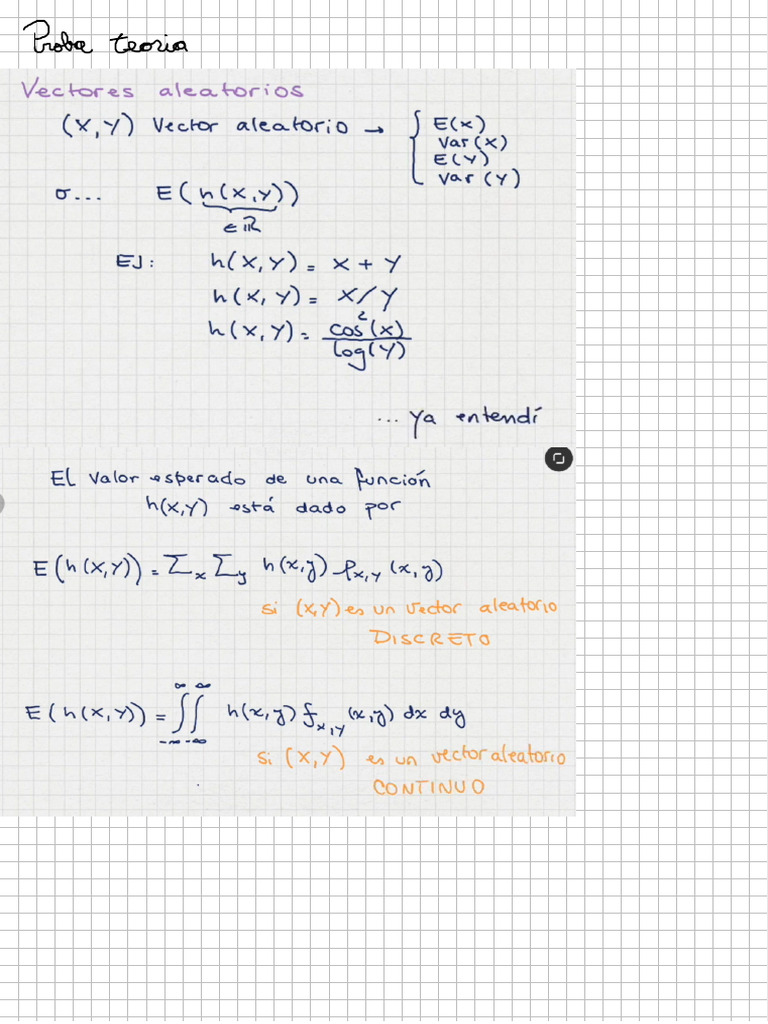 Proba teoria
Vectores aleatorios
(X,Y) Vector aleatorio → { E(X)
Var(X)
E(Y)
Var(Y)
σ... E(h(X,Y))
∈ ℝ
EJ: h(X,Y) = X + Y
h(X,Y) = X/Y
h(X,Y) = cos²(x)/log(Y)
... ya entendí
El valor esperado de una función
h(X,Y) está dado por
E(h(X,Y)) = Σx Σy h(x,y) px,y (x,y)
si (X,Y) es un vector aleatorio
DISCRETO
E(h(X,Y)) = ∫∞-∞ ∫∞-∞ h(x,y) fx,y (x,y) dx dy
si (X,Y) es un vector aleatorio
CONTINUO